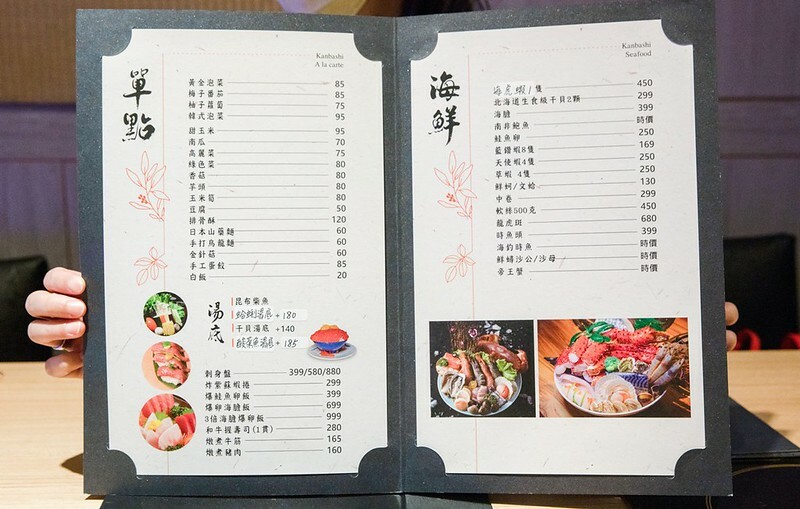 Kanbashi
A la carte
單點
黃金泡菜 85
梅子番茄 85
柚子蘿蔔 75
韓式泡菜 95
甜玉米 95
南瓜 70
高麗菜 75
綠色菜 80
香菇 80
芋頭 80
玉米筍 80
豆腐 50
排骨酥 120
日本山藥麵 60
手打烏龍麵 60
金針菇 60
手工蛋餃 85
白飯 20
湯底
昆布柴魚
蛤蜊湯底 +180
干貝湯底 +140
酸菜魚湯底 +185
刺身盤 399/580/880
炸紫蘇蝦捲 299
爆鮭魚卵飯 399
爆卵海膽飯 699
3倍海膽爆卵飯 999
和牛握壽司(1貫) 280
燉煮牛筋 165
燉煮豬肉 160
Kanbashi
Seafood
海鮮
海虎蝦1隻 450
北海道生食級干貝2顆 299
海膽 399
南非鮑魚 時價
鮭魚卵 250
藍鑽蝦8隻 169
天使蝦4隻 250
草蝦 4隻 250
鮮蚵/文蛤 130
中卷 299
軟絲500克 450
龍虎斑 680
時魚頭 399
海釣時魚 時價
鮮縛沙公/沙母 時價
帝王蟹 時價